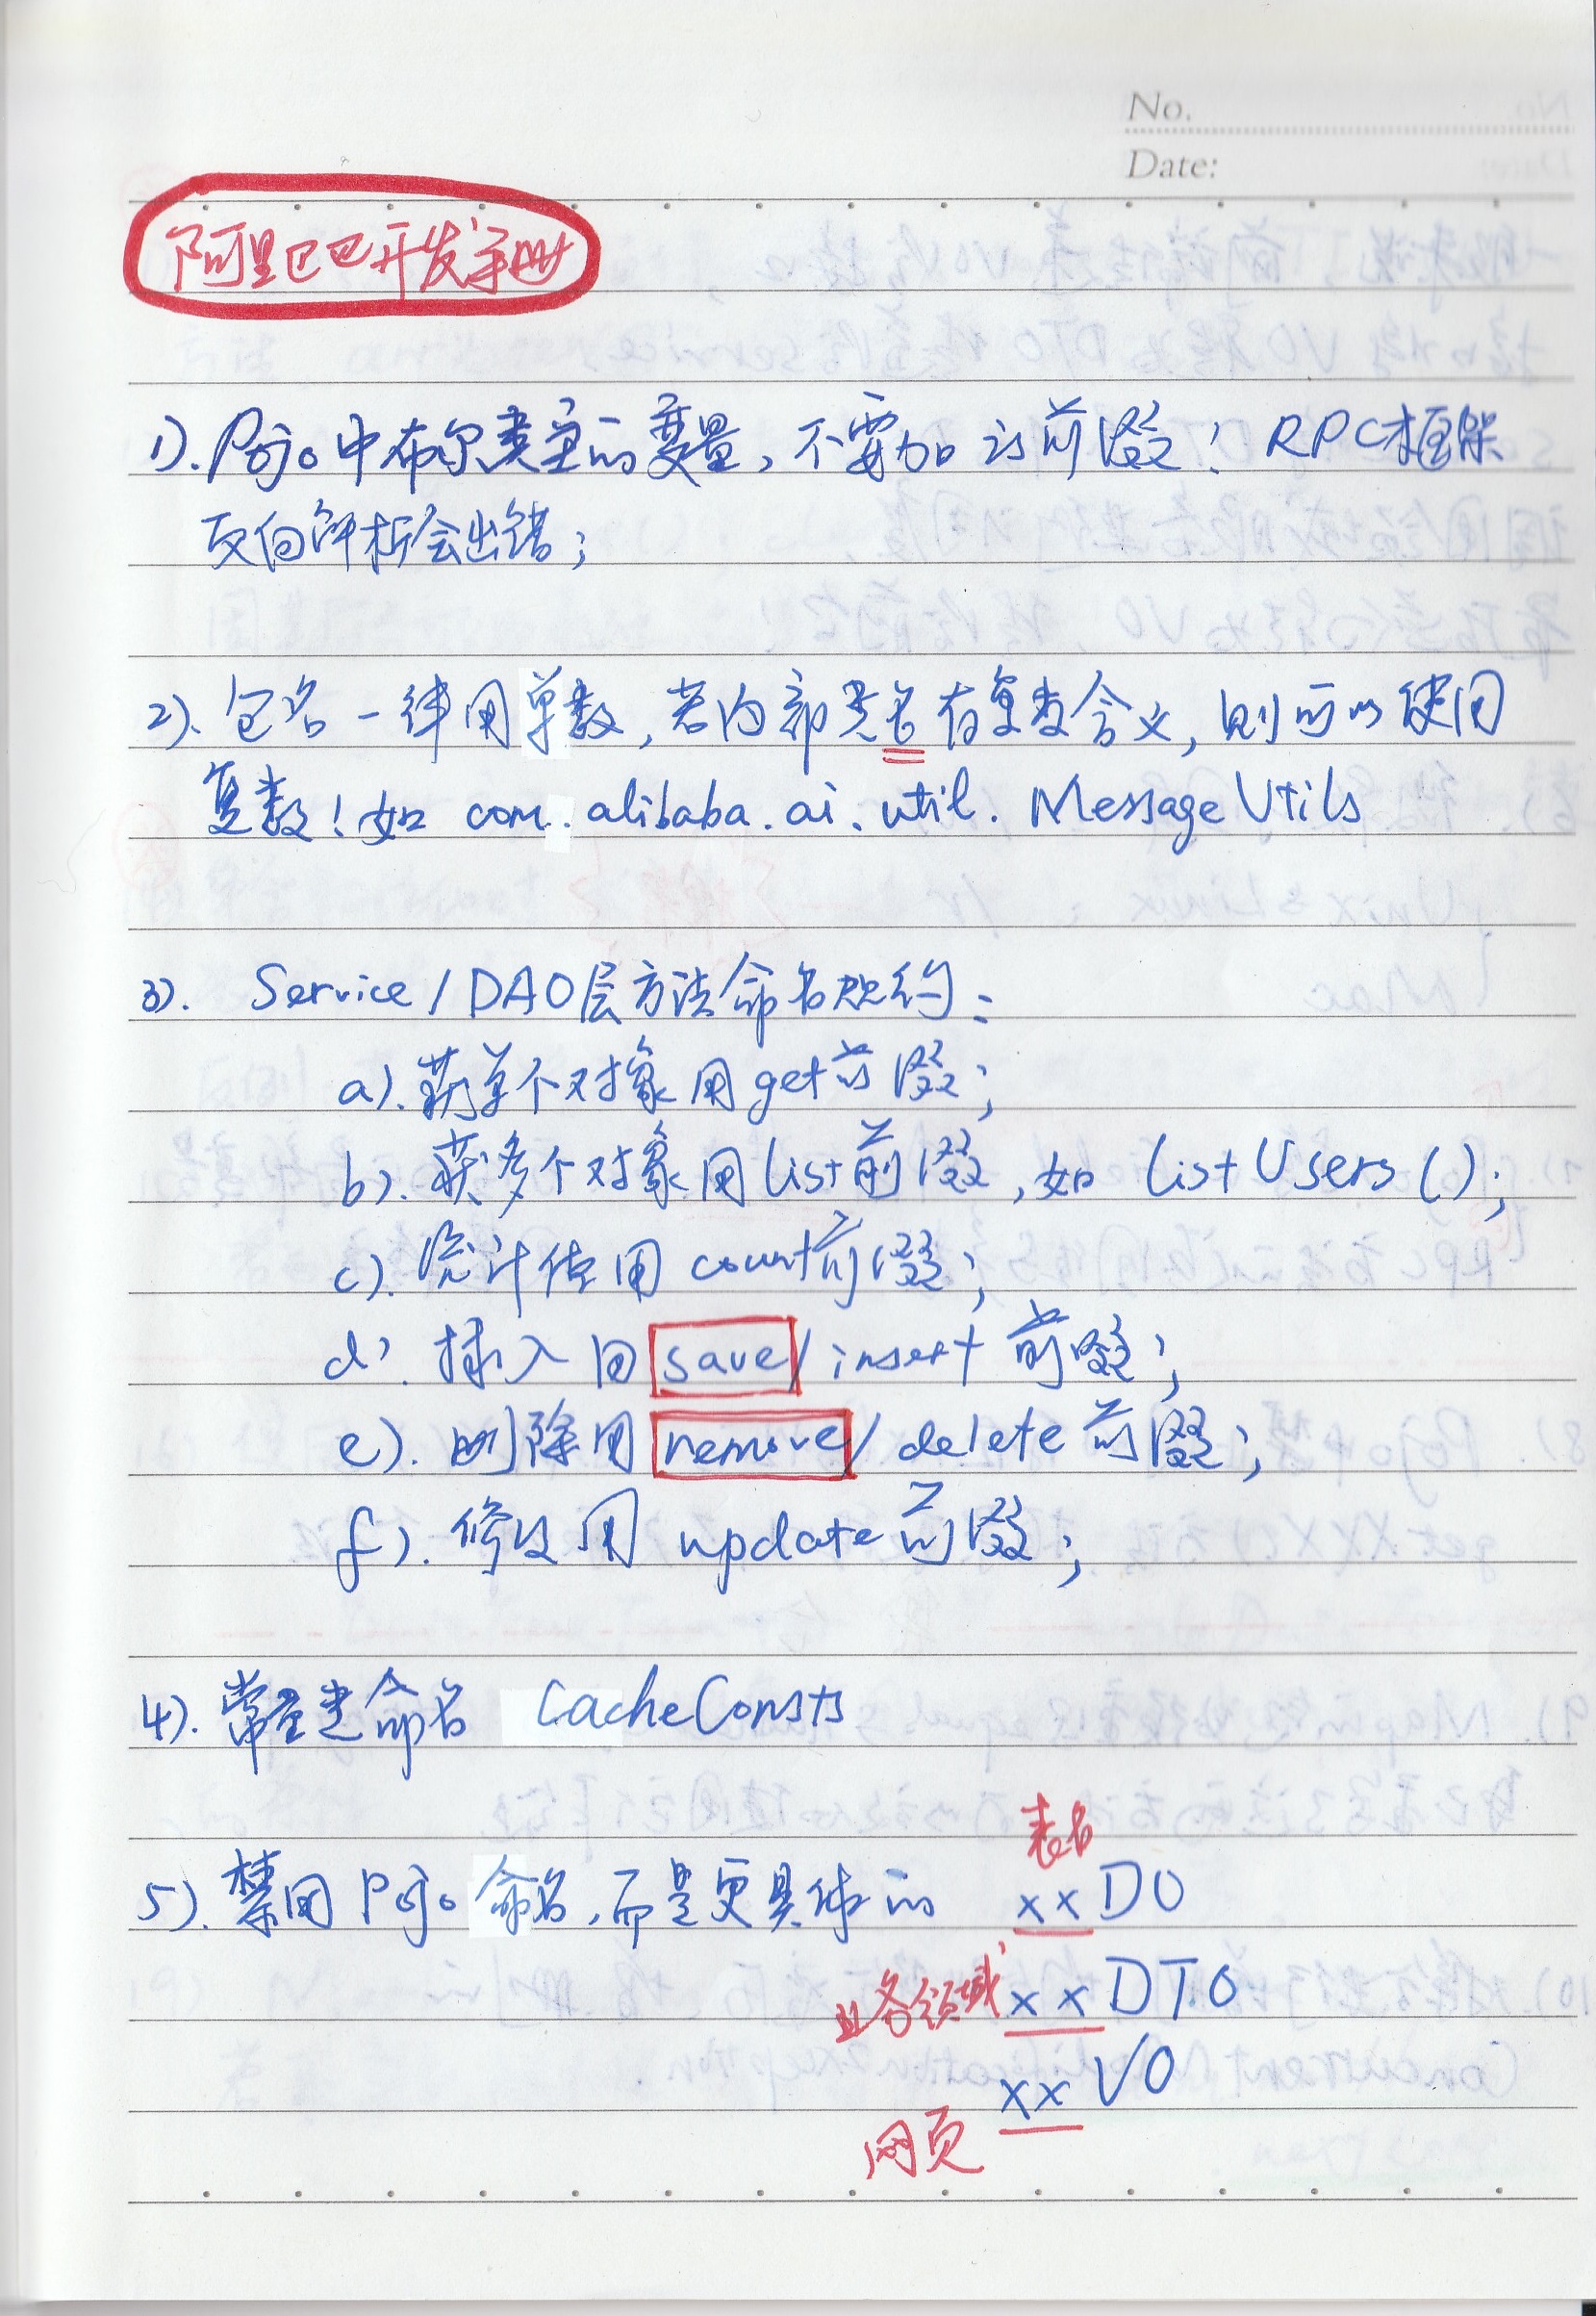 No.
Date:
阿里巴巴开发手册
1). Pojo中布尔类型的变量，不要加is前缀！RPC框架
反向解析会出错；
2). 包名一律用单数，若内部类名有复数含义，则可以使用
复数！如 com.alibaba.ai.util.MessageUtils
3). Service/DAO层方法命名规约：
a). 获单个对象用get前缀；
b). 获多个对象用list前缀，如 listUsers()；
c). 统计值用count前缀；
d). 插入用save/insert前缀；
e). 删除用remove/delete前缀；
f). 修改用update前缀；
4). 常量类命名 CacheConsts
表名
5). 禁用Pojo命名，而是更具体的 xxDO
业务领域 xxDTO
xxVO
网页